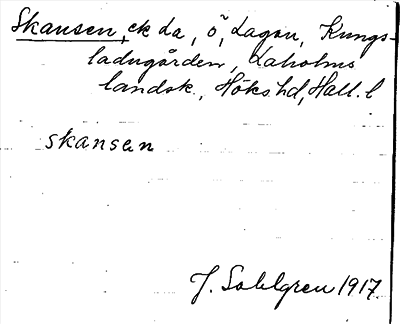 Skansen, ek La, ö, Lagan, Kungs-
ladugården, Laholms
landsk., Höks hd, Hall. l
skansen
J. Sahlgren 1917